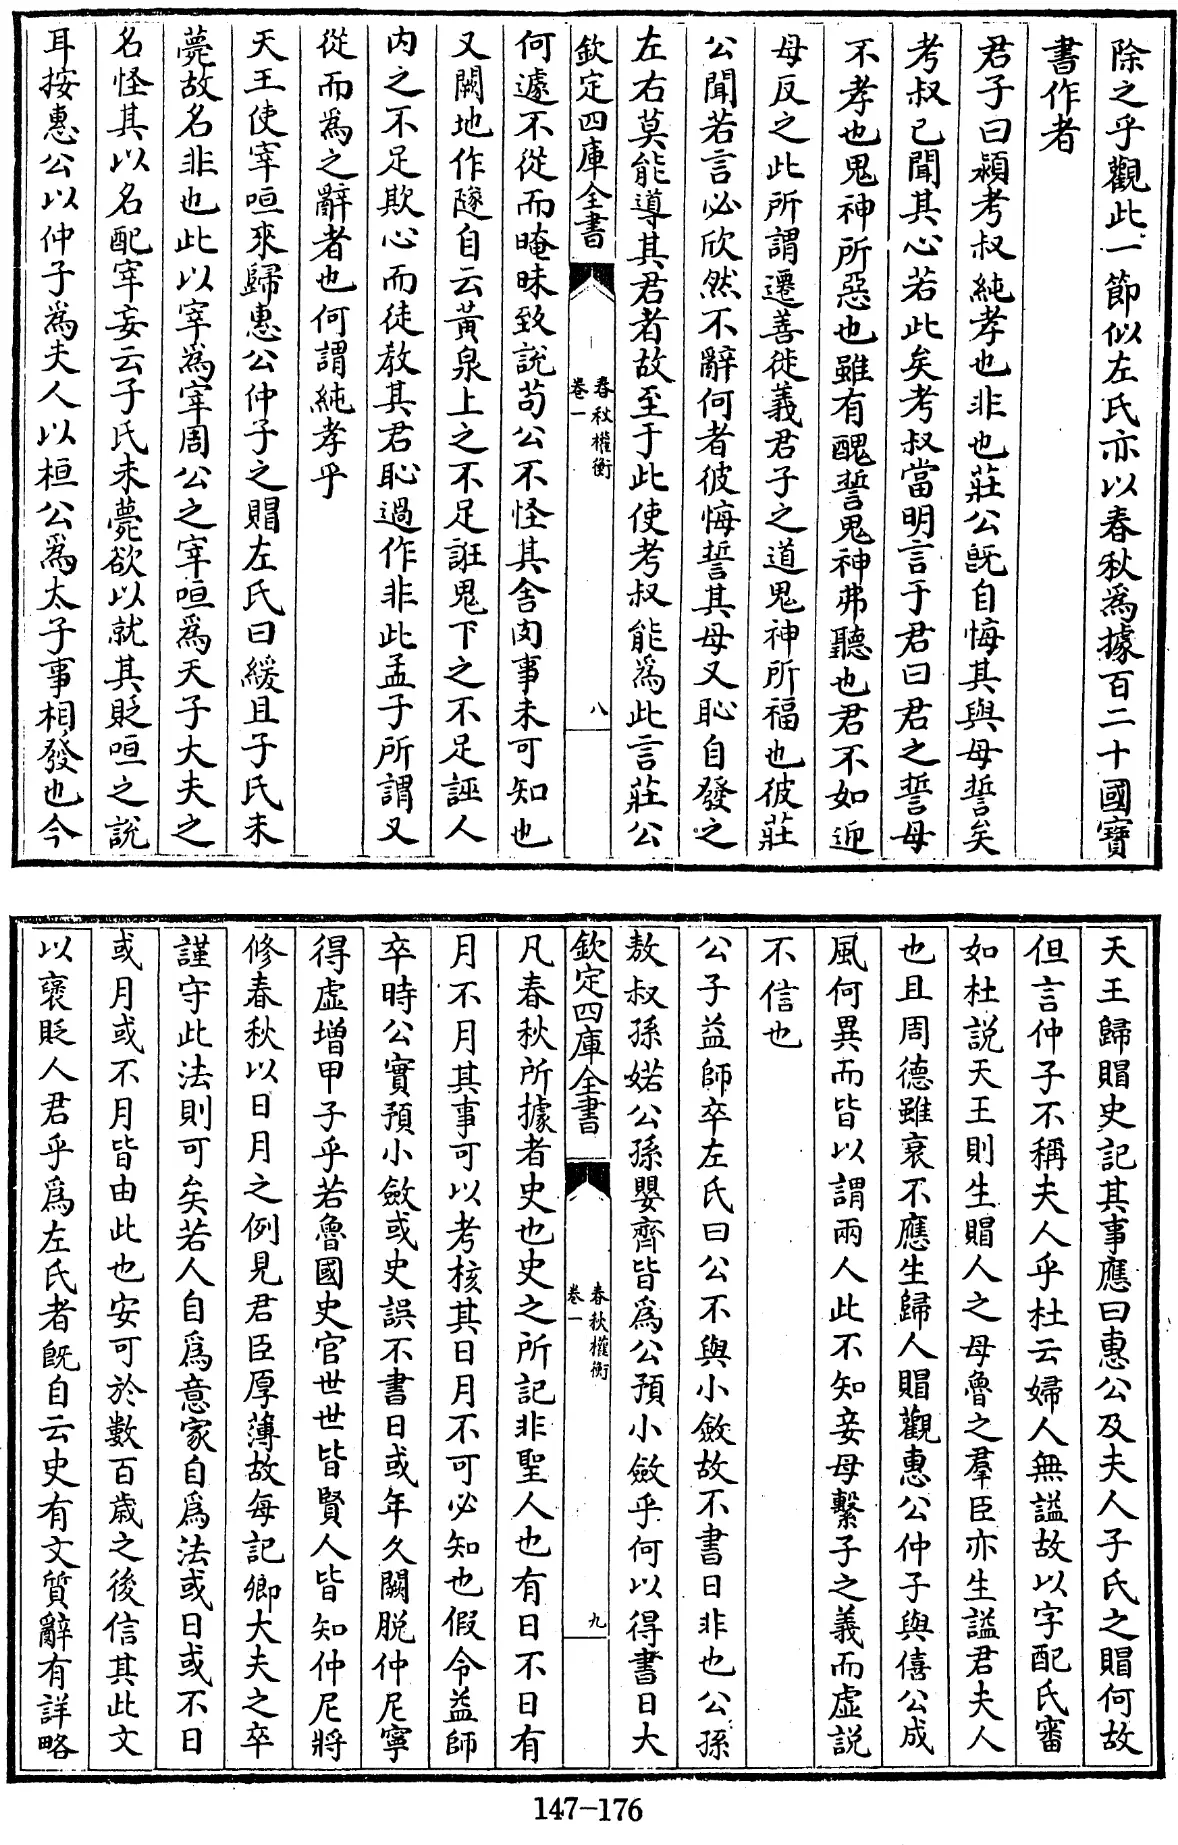 除之乎觀此一節似左氏亦以春秋爲據百二十國寶
書作者
君子曰潁考叔純孝也非也莊公旣自悔其與母誓矣
考叔已聞其心若此矣考叔當明言于君曰君之誓母
不孝也鬼神所惡也雖有醜誓鬼神弗聽也君不如迎
母反之此所謂遷善徙義君子之道鬼神所福也彼莊
公聞若言必欣然不辭何者彼悔誓其母又恥自發之
左右莫能導其君者故至于此使考叔能爲此言莊公
欽定四庫全書
春秋權衡
卷一
八
何遽不從而晻昧致說苟公不怪其舍肉事未可知也
又闕地作隧自云黃泉上之不足誑鬼下之不足誣人
内之不足欺心而徒教其君恥過作非此孟子所謂又
從而爲之辭者也何謂純孝乎
天王使宰咺來歸惠公仲子之賵左氏曰緩且子氏未
薨故名非也此以宰爲宰周公之宰咺爲天子大夫之
名怪其以名配宰妄云子氏未薨欲以就其貶咺之說
耳按惠公以仲子爲夫人以桓公爲太子事相發也今
天王歸賵史記其事應曰惠公及夫人子氏之賵何故
但言仲子不稱夫人乎杜云婦人無謚故以字配氏審
如杜説天王則生賵人之母魯之羣臣亦生謚君夫人
也且周德雖衰不應生歸人賵觀惠公仲子與僖公成
風何異而皆以謂兩人此不知妾母繫子之義而虛説
不信也
公子益師卒左氏曰公不與小斂故不書日非也公孫
敖叔孫婼公孫嬰齊皆爲公預小斂乎何以得書日大
欽定四庫全書
春秋權衡
卷一
九
凡春秋所據者史也史之所記非聖人也有日不日有
月不月其事可以考核其日月不可必知也假令益師
卒時公實預小斂或史誤不書日或年久闕脱仲尼寧
得虛增甲子乎若魯國史官世世皆賢人皆知仲尼將
修春秋以日月之例見君臣厚薄故每記卿大夫之卒
謹守此法則可矣若人自爲意家自爲法或日或不日
或月或不月皆由此也安可於數百歲之後信其此文
以褒貶人君乎爲左氏者旣自云史有文質辭有詳略
147-176